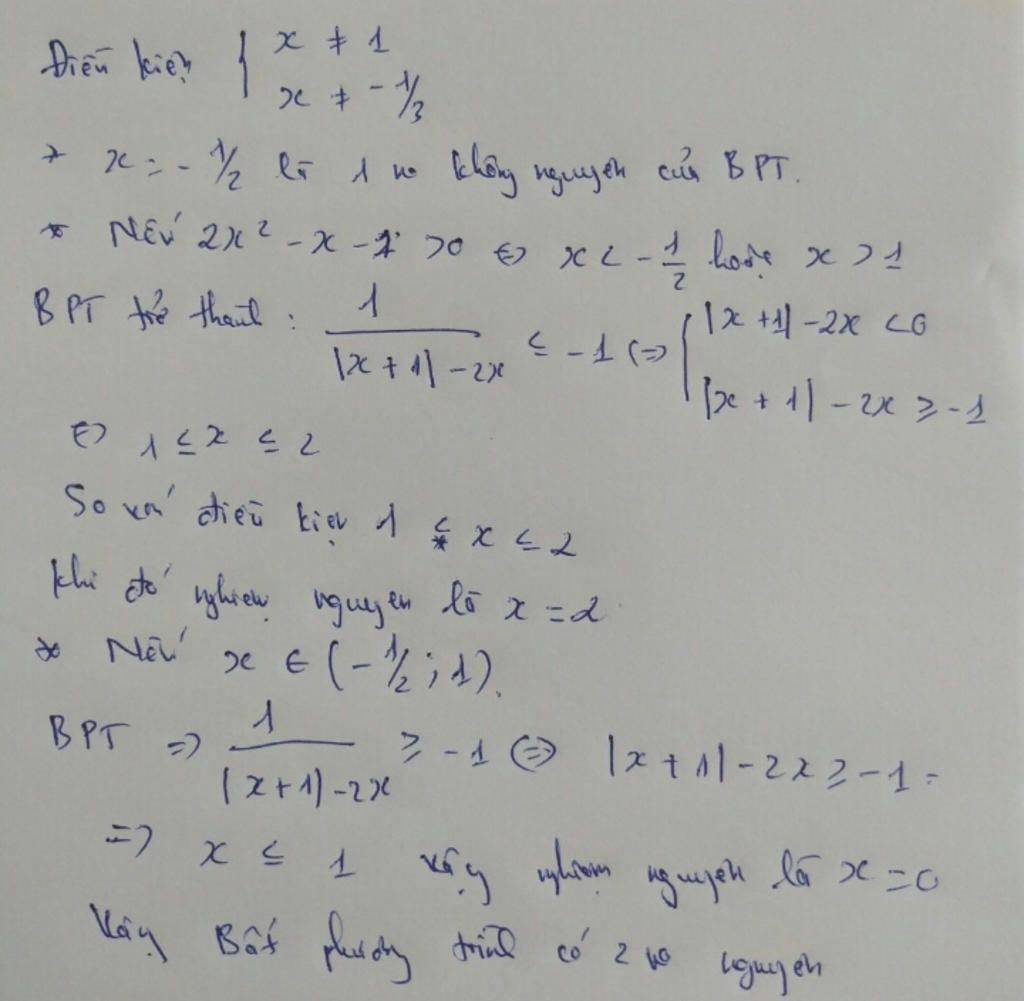 Điều kiện { x ≠ 1
x ≠ -1/3
* x = -1/2 là 1 no không nguyên của BPT.
* Nếu 2x² - x - 1 > 0 ⇔ x < -1/2 hoặc x > 1
BPT trở thành : 1/(|x + 1| - 2x) ≤ -1 ⇔ { |x + 1| - 2x < 0
|x + 1| - 2x ≥ -1
⇔ 1 ≤ x ≤ 2
So với điều kiện 1 ≤ x ≤ 2
Khi đó nghiệm nguyên là x = 2
* Nếu x ∈ (-1/2 ; 1).
BPT => 1/(|x + 1| - 2x) ≥ -1 ⇔ |x + 1| - 2x ≥ -1
=> x ≤ 1 vậy nghiệm nguyên là x = 0
Vậy Bất phương trình có 2 no nguyên